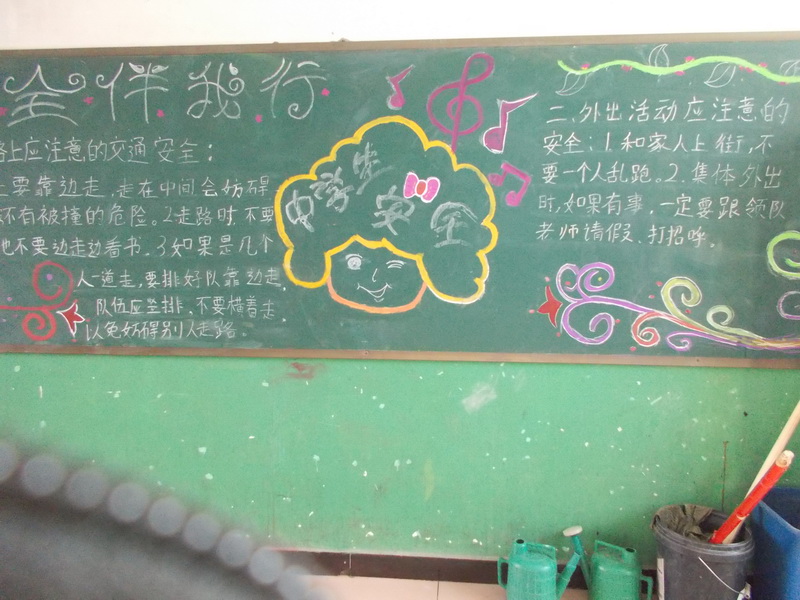 全伴我行
路上应注意的交通安全：
上要靠边走，走在中间会妨碍
还有被撞的危险。2走路时不要
也不要边走边看书。3如果是几个
人一道走，要排好队靠边走。
队伍应坐排、不要横着走，
以免妨碍别人走路
中学生
安全
二、外出活动应注意的
安全：1.和家人上街，不
要一个人乱跑。2.集体外出
时，如果有事，一定要跟领队
老师请假、打招呼。